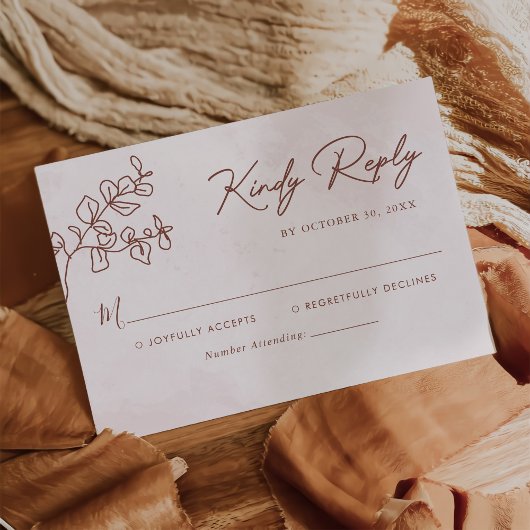 Kindy Reply
BY OCTOBER 30, 20XX
M
JOYFULLY ACCEPTS
REGRETFULLY DECLINES
Number Attending: